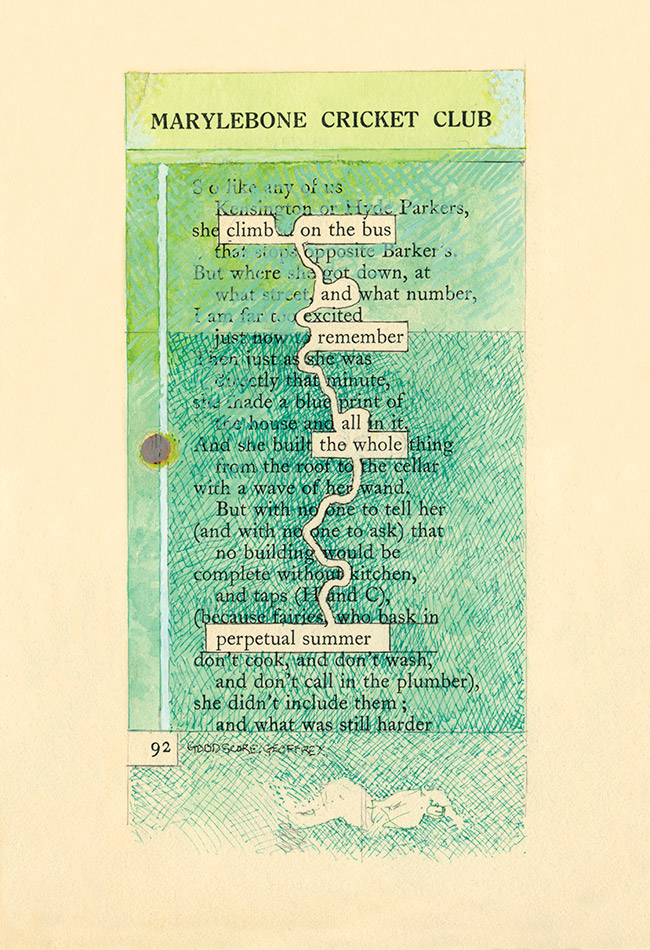 MARYLEBONE CRICKET CLUB
So like any of us
Kensington or Hyde Parkers,
she climb on the bus
that stops opposite Barker's.
But where she got down, at
what street, and what number,
I am far too excited
just now to remember
Then just as she was
directly that minute,
she made a blue print of
the house and all in it.
And she built the whole thing
from the roof to the cellar
with a wave of her wand.
But with no one to tell her
(and with no one to ask) that
no building would be
complete without kitchen,
and taps (H and C),
(because fairies, who bask in
perpetual summer
don't cook, and don't wash,
and don't call in the plumber),
she didn't include them;
and what was still harder
92 GOOD SCORE, GEOFFREY.